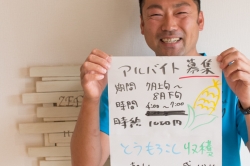 アルバイト募集
期間 7月上旬〜
8月下旬
時間 4:00〜9:00
時給 1000円
とうもろこし収穫